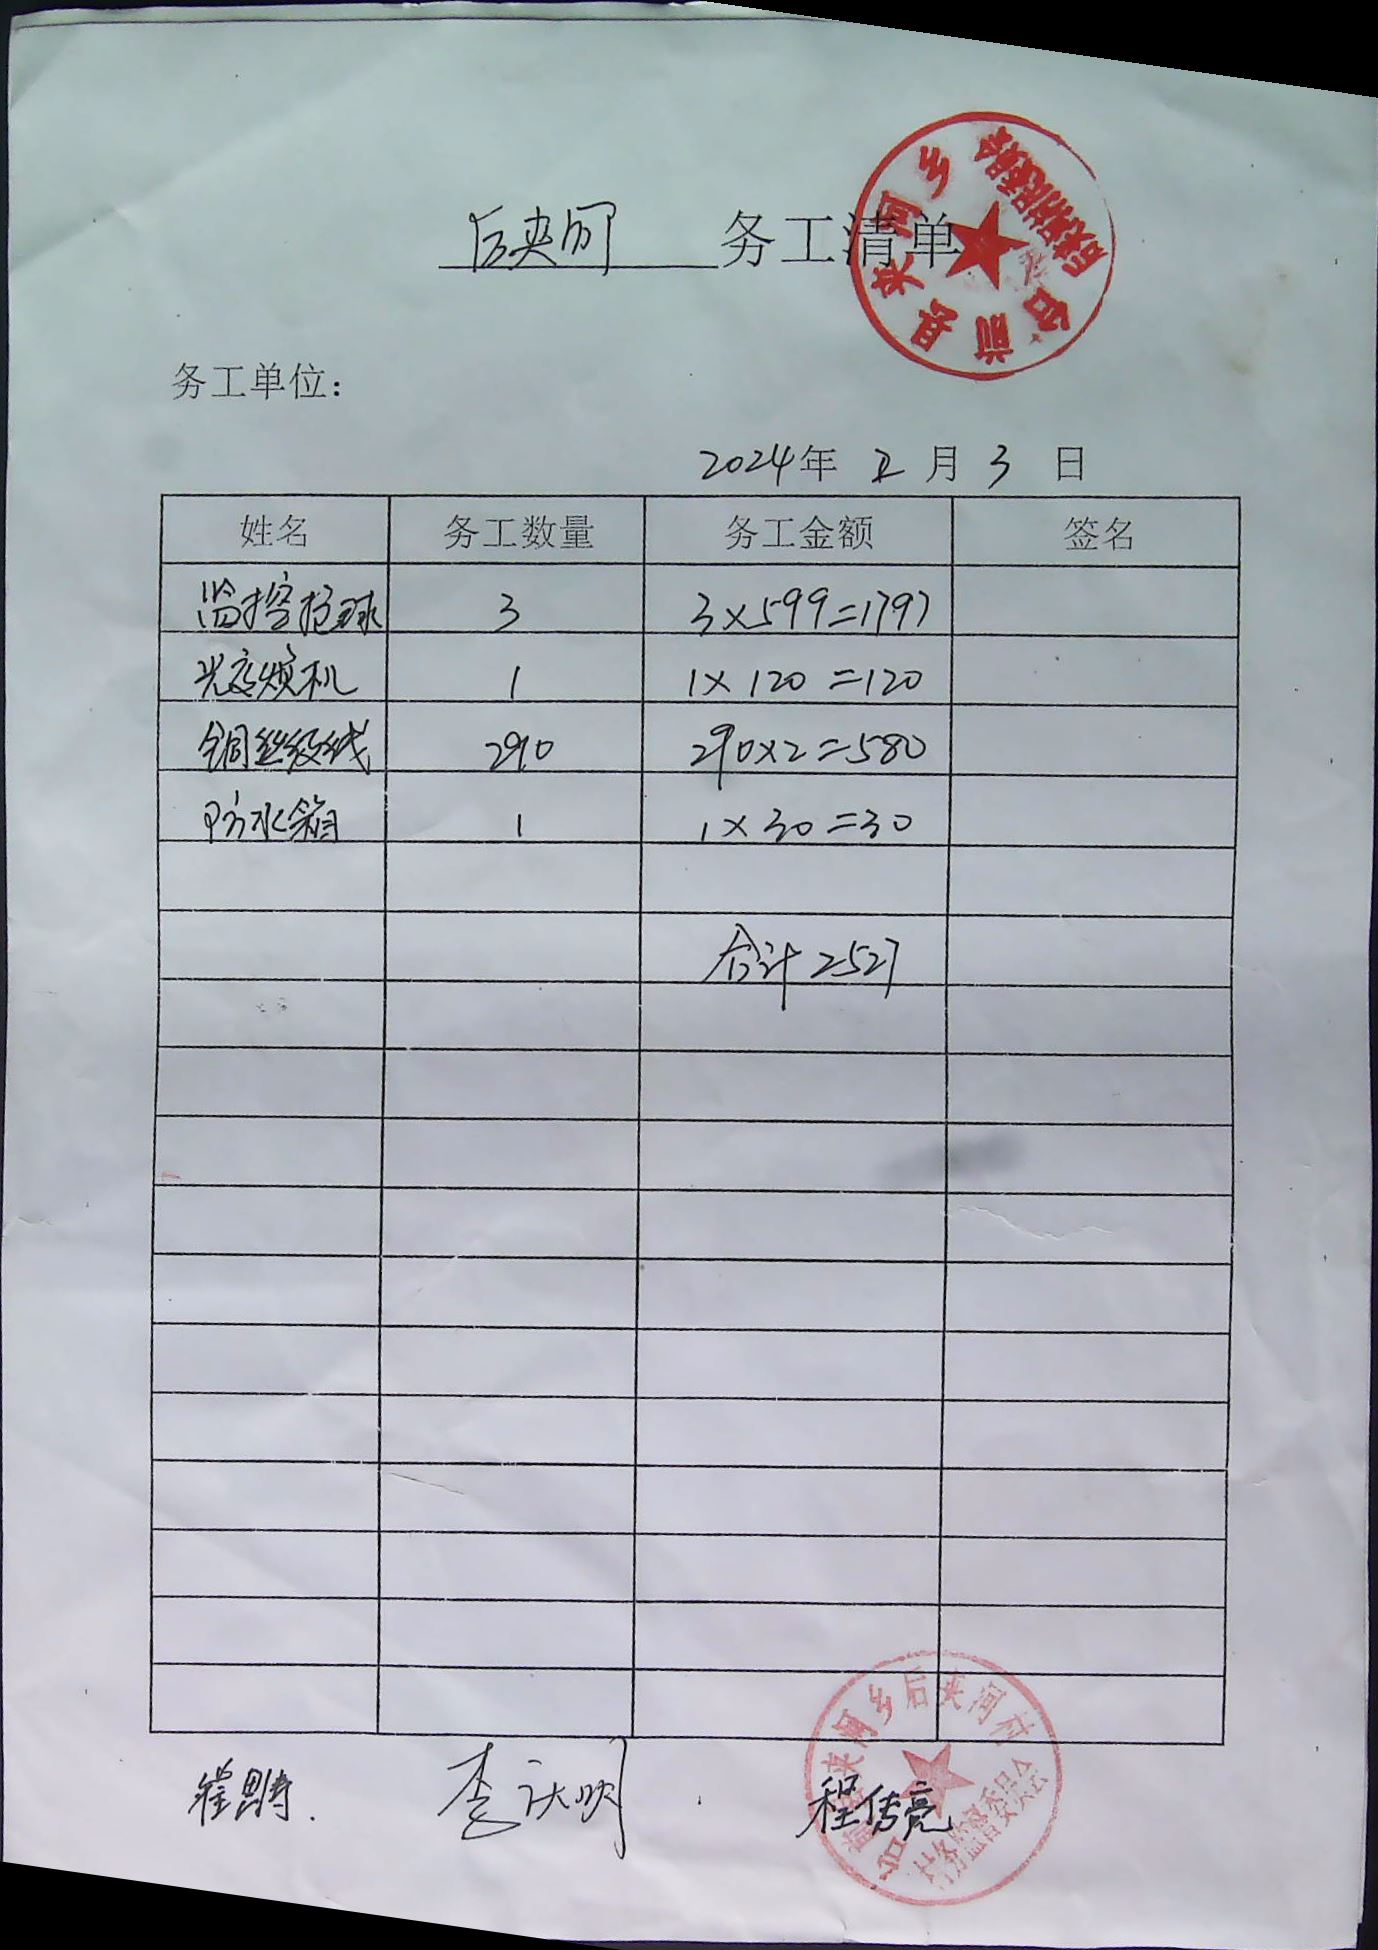 后夹河 务工清单
务工单位：
2024年 2 月 3 日
姓名 务工数量 务工金额 签名
监控抢球 3 3×599=1797
光交换机 1 1×120=120
铜丝绞线 290 290×2=580
防水箱 1 1×30=30
合计2527
李庆明 程传亮
台前县夹河乡后夹河村
村务监督委员会